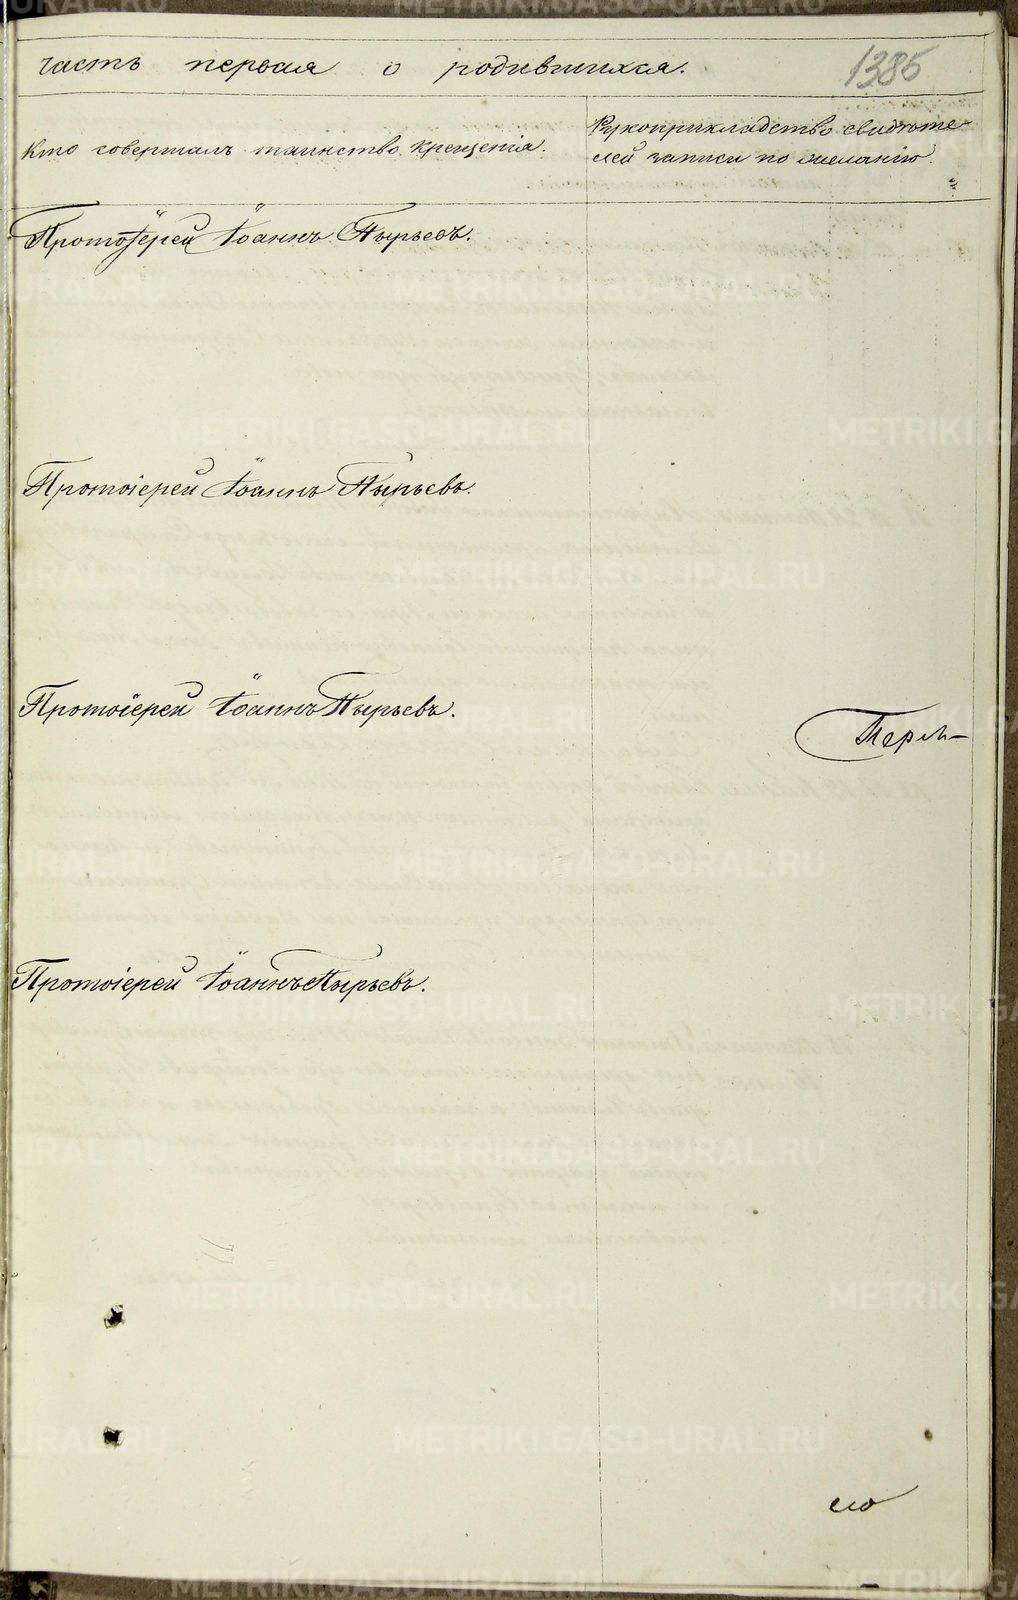 часть первая о родившихся.
1385
Кто совершалъ таинство крещенія.
Рукоприкладство свидѣте-
лей записи по желанію.
Протоіерей Іоаннъ Пырьевъ.
Протоіерей Іоаннъ Пырьевъ.
Протоіерей Іоаннъ Пырьевъ.
Перм-
Протоіерей Іоаннъ Пырьевъ.
METRIKI.GASO-URAL.RU